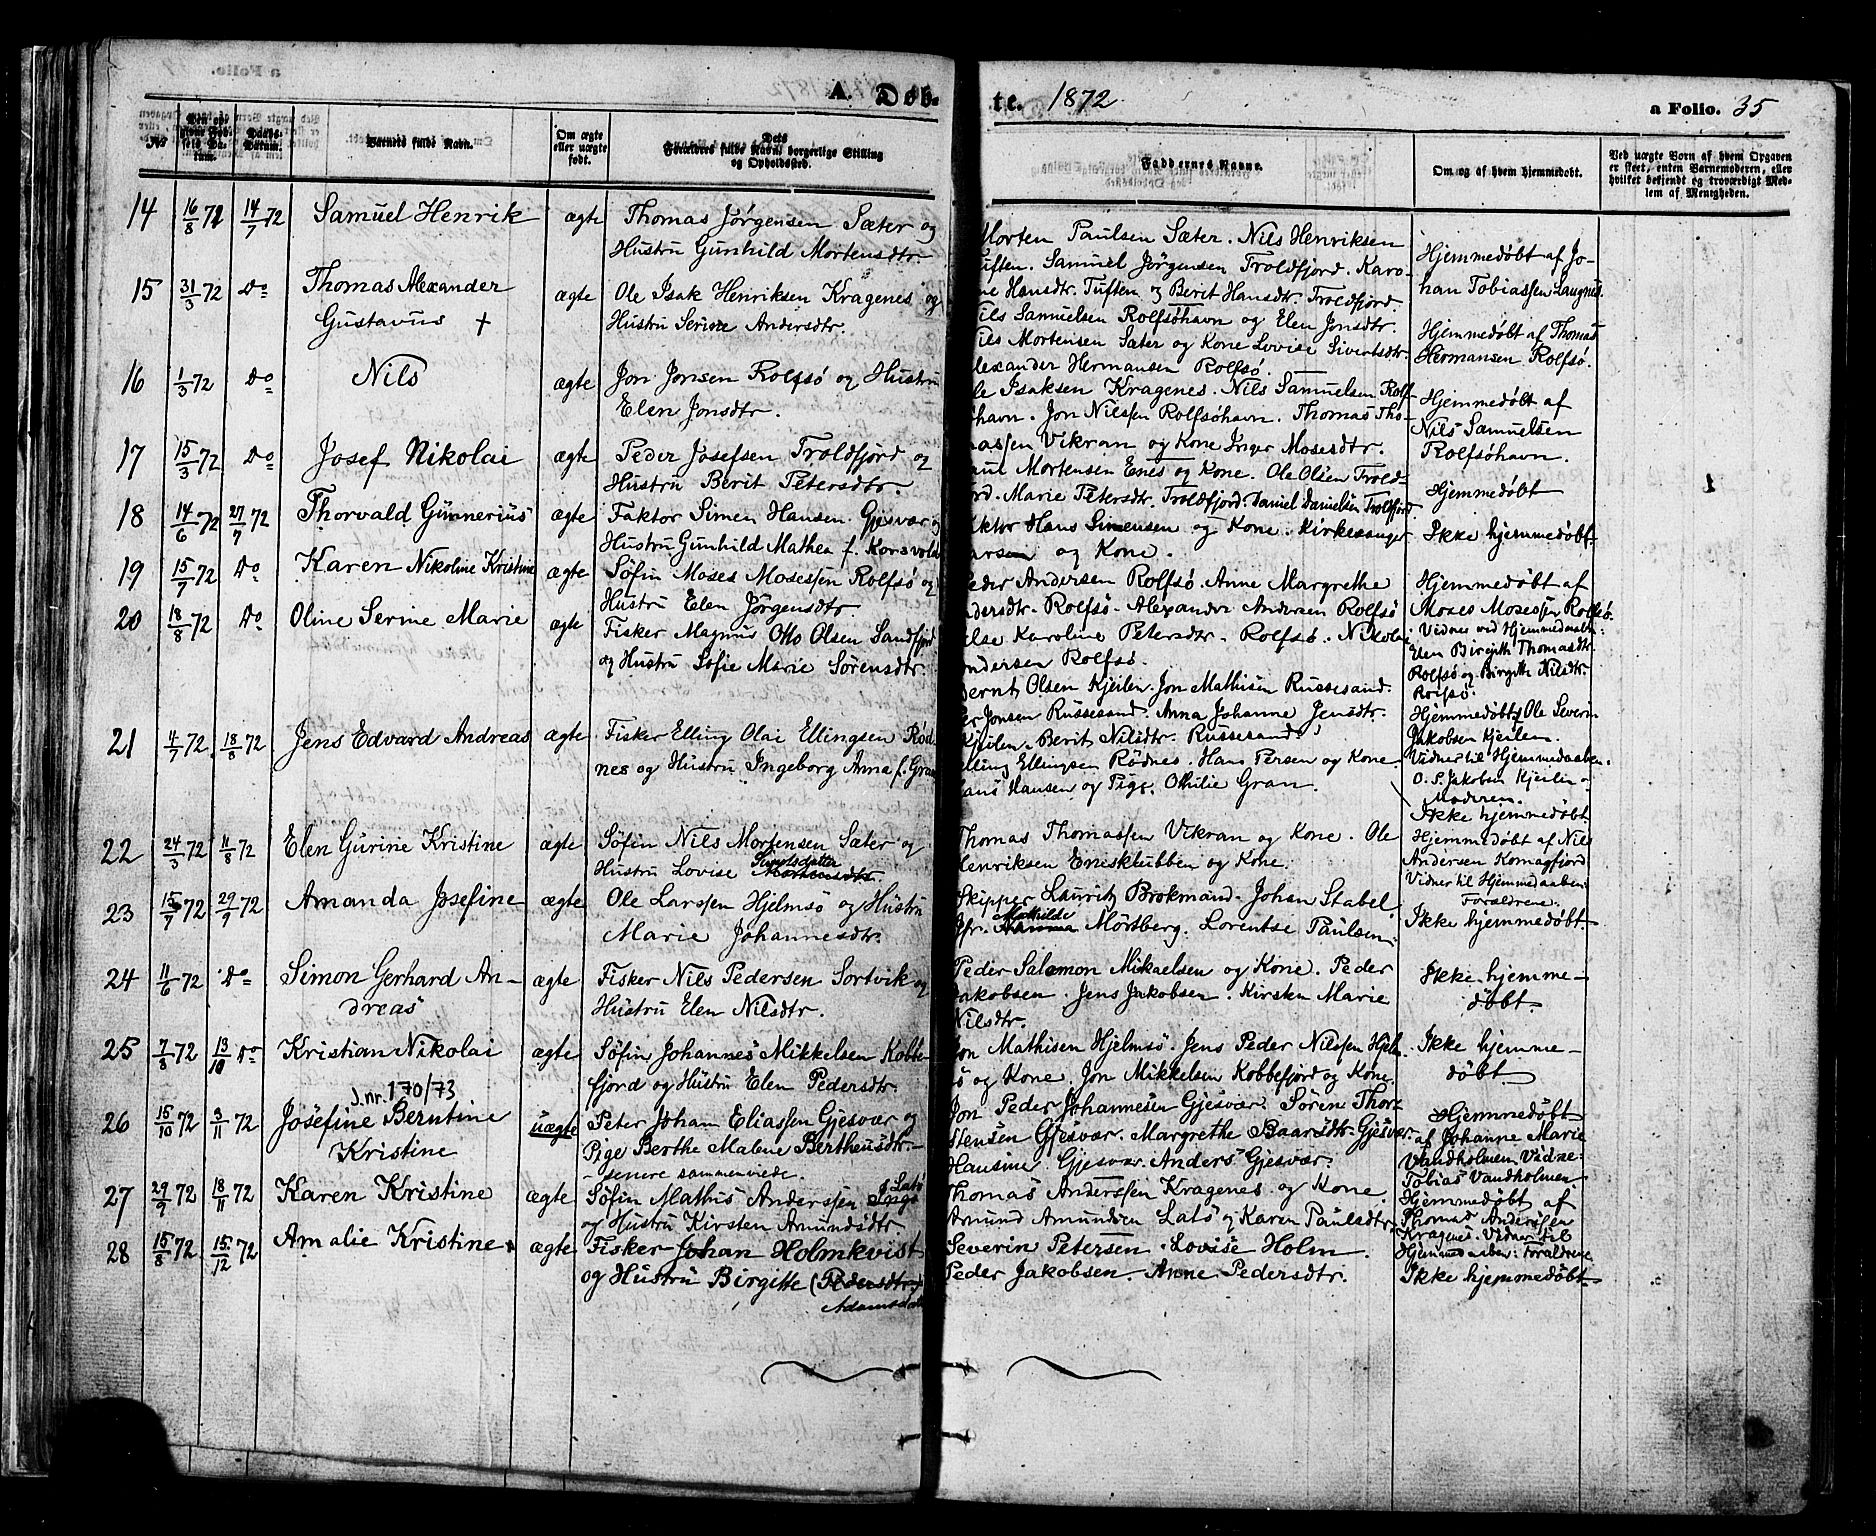 A. Döb-
te. 1872
a Folio. 35
No
Barnets fulde Navn.
Om ægte eller uægte født.
Forældres fulde Navn, borgerlige Stilling og Opholdssted.
Faddernes Navne.
Om og af hvem hjemmedøbt.
Ved uægte Børn af hvem Opgaven er skeet, enten Barnemoderen, eller hvilket bekjendt og troværdigt Medlem af Menigheden.
14 16/8 72 14/7 72 Samuel Henrik ægte Thomas Jörgensen Sæter og
Hustru Gunhild Mortensdtr.
15 31/3 72 Do Thomas Alexander ægte Ole Isak Henriksen Kragenes og
Gustavus + Hustru Serine Andersdtr.
16 1/3 72 Do Nils ægte Jon Jonsen Rolfsö og Hustru
Elen Jonsdtr.
17 15/3 72 Do Josef Nikolai ægte Peder Josefsen Troldfjord og
Hustru Berit Petersdtr.
18 14/6 72 27/7 72 Thorvald Gunnerius ægte Faktor Simen Hansen Gjesvær og
Hustru Gunhild Mathea f. Korsvold
19 15/7 72 Do Karen Nikoline Kristine ægte Söfin Moses Mosessen Rolfsö og
Hustru Elen Jörgensdtr.
20 18/8 72 Do Oline Serine Marie ægte Fisker Magnus Otto Olsen Sandfjord
og Hustru Sofie Marie Sörensdtr.
21 4/7 72 18/8 72 Jens Edvard Andreas ægte Fisker Elling Olai Ellingsen Röd-
nes og Hustru Ingeborg Anna f. Gran
22 24/3 72 11/8 72 Elen Gurine Kristine ægte Söfin Nils Mortensen Sæter og
Hustru Lovise Sivertsdatter Mortensdtr.
23 15/7 72 29/9 72 Amanda Josefine ægte Ole Larssen Hjelmsö og Hustru
Marie Johannesdtr.
24 11/6 72 Do Simon Gerhard An- ægte Fisker Nils Pedersen Sortvik og
dreas Hustru Elen Nilsdtr.
25 7/8 72 13/10 Do Kristian Nikolai ægte Söfin Johannes Mikkelsen Kobbe-
fjord og Hustru Elen Pedersdtr.
J.nr. 170/73
26 15/10 72 3/11 72 Josefine Berntine uægte Peter Johan Eliassen Gjesvær og
Kristine Pige Berthe Malene Bertheusdtr.
senere sammenviede.
27 29/9 72 18/11 72 Karen Kristine ægte Söfin Mathis Anderssen Latö
og Hustru Kirsten Amundsdtr
28 15/8 72 15/12 72 Amalie Kristine ægte Fisker Johan Holmkvist
og Hustru Birgitte (Pedersdtr)
Adamsdatt
Morten Paulsen Sæter. Nils Henriksen
Tuften. Samuel Jörgensen Troldfjord. Karo-
ne Hansdtr. Tuften og Berit Hansdtr. Troldfjord.
Nils Samuelsen Rolfsöhavn og Elen Jonsdtr.
Nils Mortensen Sæter og Kone Lovise Sivertsdtr.
Alexander Hermansen Rolfsö.
Ole Isaksen Kragenes. Nils Samuelsen Rolf-
söhavn. Jon Nilssen Rolfsöhavn. Thomas Tho-
massen Vikran og Kone Inger Mosesdtr.
Paul Mortensen Enes og Kone. Ole Olsen Trold-
fjord. Marie Petersdtr. Troldfjord. Daniel Danielsen Troldfjord
Faktor Hans Simensen og Kone. Kirkesanger
Larsen og Kone.
Peder Andersen Rolfsö. Anne Margrethe
Andersdtr. Rolfsö. Alexander Andersen Rolfsö
Else Karoline Petersdtr. Rolfsö. Nikolai
Andersen Rolfsö.
Bernt Olsen Kjeilen. Jon Mathisen Russesand.
Per Jonsen Russesand. Anna Johanne Jensdtr.
Kjeilen. Berit Nilsdtr. Russesand.
Elling Ellingsen Rödnes. Hans Persen og Kone.
Hans Hansen og Pige Othilie Gran.
Thomas Thomassen Vikran og Kone. Ole
Henriksen Enesklubben og Kone.
Skipper Lauritz Brokmand. Johan Stabel.
Jfr. Mathilde Hanna Mörtberg. Lorentse Paulsen.
Peder Salomon Mikaelsen og Kone. Peder
Jakobsen. Jens Jakobsen. Kirsten Marie
Nilsdtr.
Jon Mathisen Hjelmsö. Jens Peder Nilssen Hjelm-
sö og Kone. Jon Mikkelsen Kobbefjord og Kone.
Jon Peder Johannesen Gjesvær. Sören Thor-
stensen Gjesvær. Margrethe Baarsdtr. Gjesvær.
Hansine Gjesvær. Anders Gjesvær.
Thomas Anderssen Kragenes og Kone
Amund Amundsen Latö og Karen Paulsdtr.
Severin Petersen. Lovise Holm.
Peder Jakobsen. Anne Pedersdtr.
Hjemmedöbt af Jo-
han Tobiassen Laugnes.
Hjemmedöbt af Thomas
Hermansen Rolfsö.
Hjemmedöbt af
Nils Samuelsen
Rolfsöhavn.
Hjemmedöbt
Ikke hjemmedöbt.
Hjemmedöbt af
Moses Mosessen Rolfsö.
Vidner ved Hjemmedaaben:
Elen Birgith Thomasdtr.
Rolfsö og Birgitte Nilsdtr.
Rolfsö.
Hjemmedöbt af Ole Severin
Jakobsen Kjeilen.
Vidner til Hjemmedaaben:
O. S. Jakobsen Kjeilen o
Moderen.
Ikke hjemmedöbt.
Hjemmedöbt af Nils
Andersen Komagfjord
Vidner til Hjemmedaaben:
Forældrene.
Ikke hjemmedöbt.
Ikke hjemme-
döbt.
Ikke hjemme-
döbt.
Hjemmedöbt
af Johanne Marie
Vandholmen Vidne
Tobias Vandholmen
Hjemmedöbt af
Thomas Anderssen
Kragenes. Vidner til
Hjemmedaaben: Forældrene
Ikke hjemmedöbt.